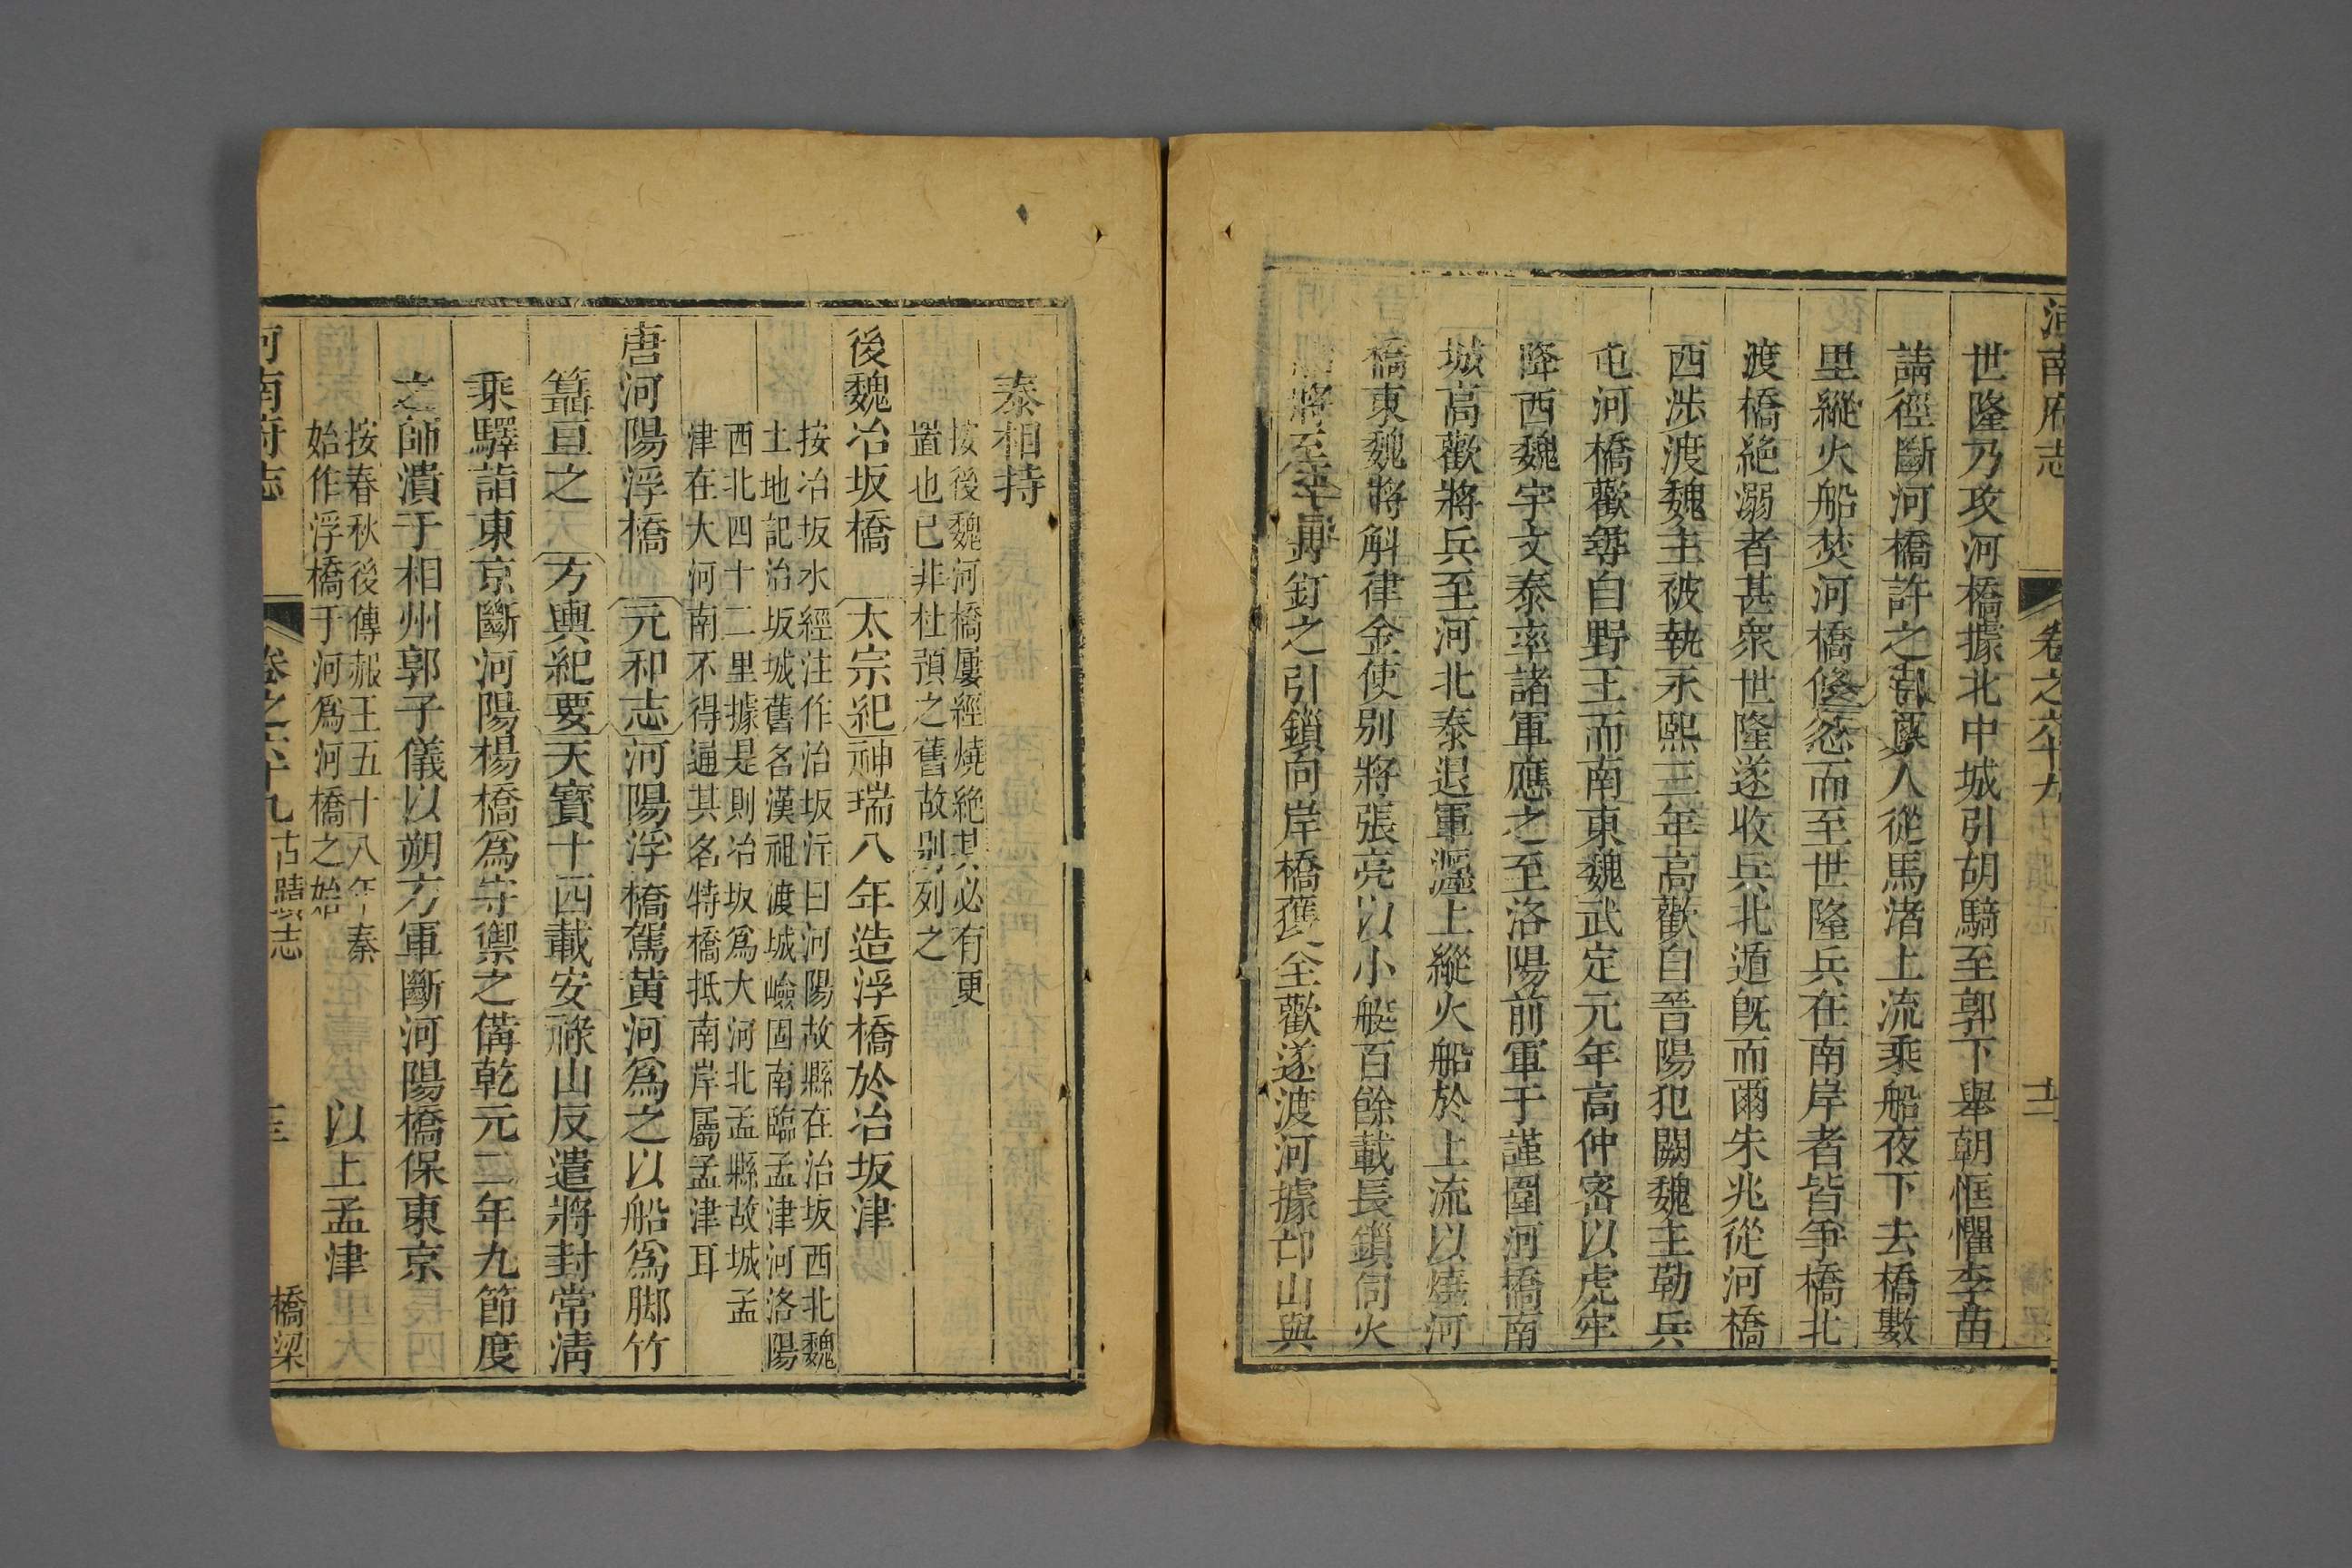 河南府志 卷之六十九
世隆乃攻河橋據北中城引胡騎至郭下舉朝恇懼李苗
請徑斷河橋許之苗募人從馬渚上流乘船夜下去橋數
里縱火船焚河橋倏忽而至世隆兵在南岸者皆爭橋北
渡橋絶溺者甚衆世隆遂收兵北遁旣而爾朱兆從河橋
西涉渡魏主被執永熙三年高歡自晉陽犯闕魏主勒兵
屯河橋歡尋自野王而南東魏武定元年高仲宻以虎牢
降西魏宇文泰率諸軍應之至洛陽前軍于謹圍河橋南
城高歡將兵至河北泰退軍瀍上縱火船於上流以燒河
橋東魏將斛律金使别將張亮以小艇百餘載長鎖伺火
將至以釘釘之引鎖向岸橋獲全歡遂渡河據邙山與
泰相持
按後魏河橋屢經燒絶其必有更
置也已非杜預之舊故别列之
後魏冶坂橋 太宗紀神瑞八年造浮橋於冶坂津
按冶坂水經注作治坂泞曰河陽故縣在治坂西北魏
土地記治坂城舊名漢祖渡城嶮固南臨孟津河洛陽
西北四十二里據是則冶坂爲大河北孟縣故城孟
津在大河南不得通其名特橋抵南岸屬孟津耳
唐河陽浮橋 元和志河陽浮橋駕黄河爲之以船爲脚竹
簹亘之 方輿紀要天寳十四載安祿山反遣將封常淸
乘驛詣東京斷河陽楊橋爲守禦之備乾元二年九節度
之師潰于相州郭子儀以朔方軍斷河陽橋保東京
按春秋後傳赧王五十八年秦
始作浮橋于河爲河橋之始
以上孟津
河南府志 卷之六十九 古蹟志 橋梁